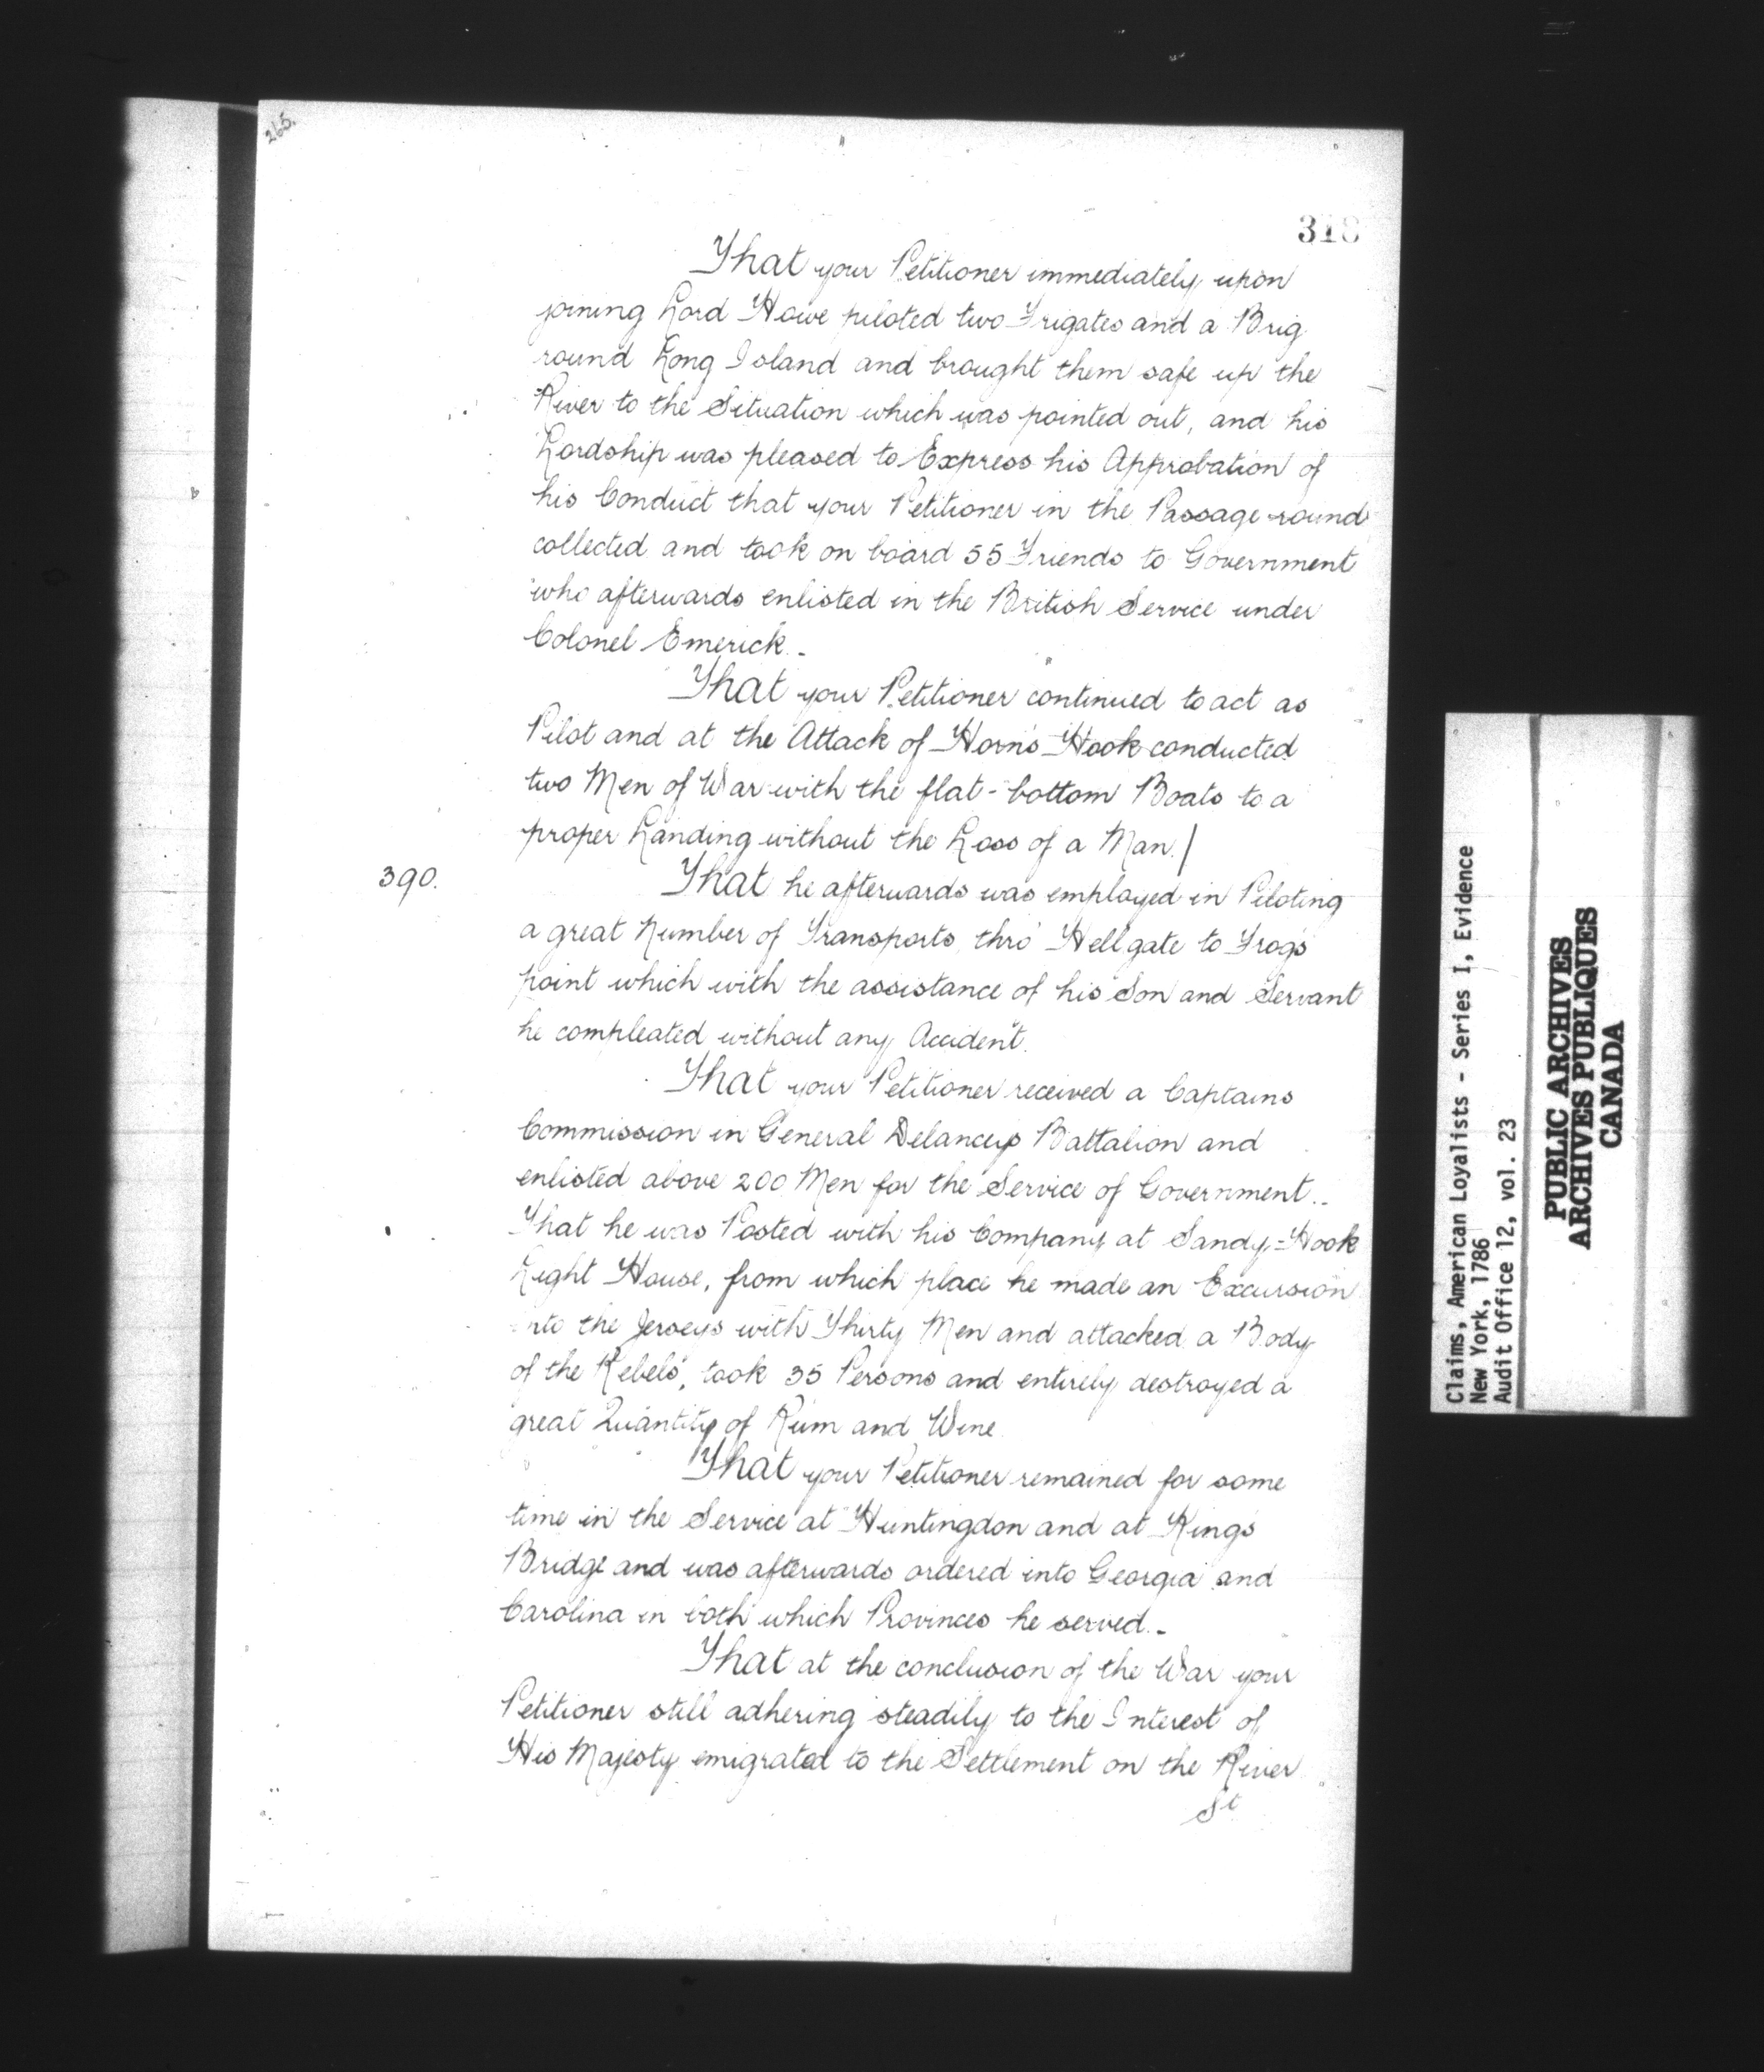 265.
318
That your Petitioner immediately upon
joining Lord Howe piloted two Frigates and a Brig
round Long Island and brought them safe up the
River to the Situation which was pointed out, and his
Lordship was pleased to Express his Approbation of
his Conduct that your Petitioner in the Passage round
collected and took on board 55 Friends to Government
who afterwards enlisted in the British Service under
Colonel Emerick.-
That your Petitioner continued to act as
Pilot and at the Attack of Horns Hook conducted
two Men of War with the flat-bottom Boats to a
proper Landing without the Loss of a Man./
390.
That he afterwards was employed in Piloting
a great Number of Transports thro' Hellgate to Frogs
point which with the assistance of his Son and Servant
he compleated without any Accident.
That your Petitioner received a Captains
Commission in General Delanceys Battalion and
enlisted above 200 Men for the Service of Government.-
That he was Posted with his Company at Sandy=Hook
Light House, from which place he made an Excursion
into the Jerseys with Thirty Men and attacked a Body
of the Rebels, took 35 Persons and entirely destroyed a
great Quantity of Rum and Wine.
That your Petitioner remained for some
time in the Service at Huntingdon and at Kings
Bridge and was afterwards ordered into Georgia and
Carolina in both which Provinces he served.-
That at the conclusion of the War your
Petitioner still adhering steadily to the Interest of
His Majesty emigrated to the Settlement on the River
St
Claims, American Loyalists - Series I, Evidence
New York, 1786
Audit Office 12, vol. 23
PUBLIC ARCHIVES
ARCHIVES PUBLIQUES
CANADA